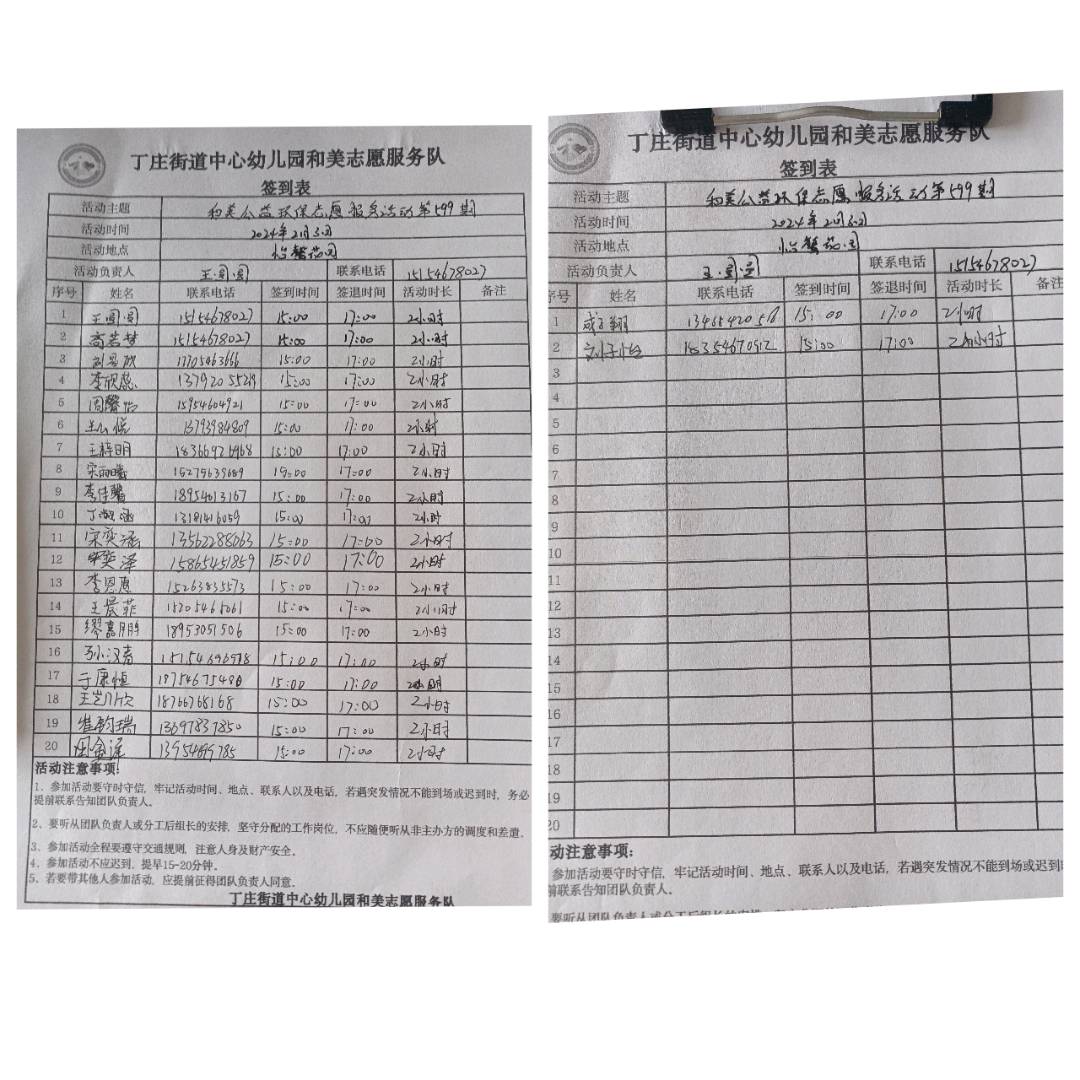 丁庄街道中心幼儿园和美志愿服务队
签到表
活动主题 和美公益环保志愿服务活动第599期
活动时间 2024年2月3日
活动地点 怡馨花园
活动负责人 王圆圆 联系电话 15154678027
序号 姓名 联系电话 签到时间 签退时间 活动时长 备注
1 王圆圆 15154678027 15:00 17:00 2小时
2 15154678027 15:00 17:00 2小时
3 17705463666 15:00 17:00 2小时
4 李欣蕊 15:00 17:00 2小时
5 周馨怡 15954604921 15:00 17:00 2小时
6 13793984809 15:00 17:00 2小时
7 王梓明 15:00 17:00 2小时
8 宋雨曦 15:00 17:00 2小时
9 李佳馨 18954613167 15:00 17:00 2小时
10 丁淑涵 13181416059 15:00 17:00 2小时
11 宋奕涵 13562288063 15:00 17:00 2小时
12 奕泽 15865451859 15:00 17:00 2小时
13 李恩惠 15263835573 15:00 17:00 2小时
14 王晨菲 15:00 17:00 2小时
15 缪嘉鹏 18953051506 15:00 17:00 2小时
16 孙汉青 15:00 17:00 2小时
17 于康恒 18754675480 15:00 17:00 2小时
18 王艺欣 18766768168 15:00 17:00 2小时
19 崔韵瑞 13697837850 15:00 17:00 2小时
20 15:00 17:00 2小时
活动注意事项:
1、参加活动要守时守信，牢记活动时间、地点、联系人以及电话，若遇突发情况不能到场或迟到时，务必
提前联系告知团队负责人。
2、要听从团队负责人或分工后组长的安排，坚守分配的工作岗位，不应随便听从非主办方的调度和差遣。
3、参加活动全程要遵守交通规则，注意人身及财产安全。
4、参加活动不应迟到，提早15-20分钟。
5、若要带其他人参加活动，应提前征得团队负责人同意。
丁庄街道中心幼儿园和美志愿服务队
丁庄街道中心幼儿园和美志愿服务队
签到表
活动主题 和美公益环保志愿服务活动第599期
活动时间 2024年2月3日
活动地点 怡馨花园
活动负责人 王圆圆 联系电话 15154678027
序号 姓名 联系电话 签到时间 签退时间 活动时长 备注
1 15:00 17:00 2小时
2 刘子怡 18354670912 15:00 17:00 2小时
3
4
5
6
7
8
9
10
11
12
13
14
15
16
17
18
19
20
动注意事项:
参加活动要守时守信，牢记活动时间、地点、联系人以及电话，若遇突发情况不能到场或迟到
前联系告知团队负责人。
要听从团队负责人或分工后组长的安排